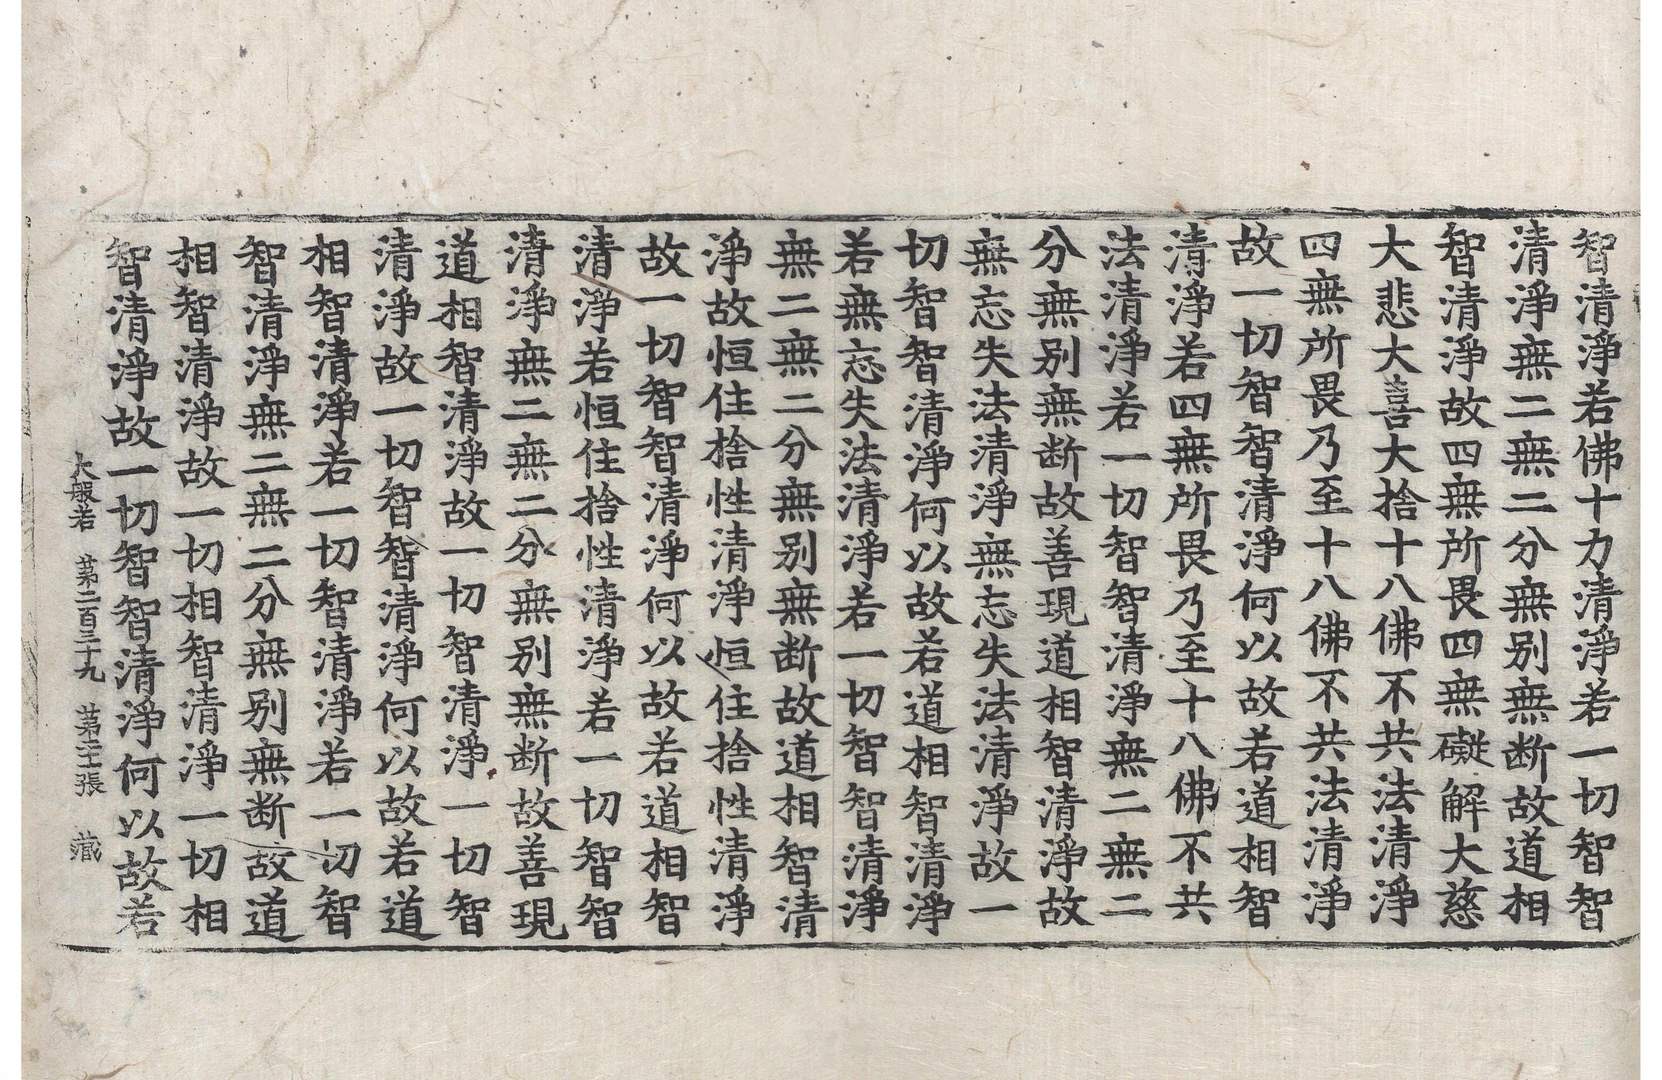 智清淨若佛十力清淨若一切智智
清淨無二無二分無别無断故道相
智清淨故四無所畏四無礙解大慈
大悲大喜大捨十八佛不共法清淨
四無所畏乃至十八佛不共法清淨
故一切智智清淨何以故若道相智
清淨若四無所畏乃至十八佛不共
法清淨若一切智智清淨無二無二
分無别無断故善現道相智清淨故
無忘失法清淨無忘失法清淨故一
切智智清淨何以故若道相智清淨
若無忘失法清淨若一切智智清淨
無二無二分無别無断故道相智清
淨故恒住捨性清淨恒住捨性清淨
故一切智智清淨何以故若道相智
清淨若恒住捨性清淨若一切智智
清淨無二無二分無别無断故善現
道相智清淨故一切智清淨一切智
清淨故一切智智清淨何以故若道
相智清淨若一切智清淨若一切智
智清淨無二無二分無别無断故道
相智清淨故一切相智清淨一切相
智清淨故一切智智清淨何以故若
大般若 苐二百三十九 苐 張 藏